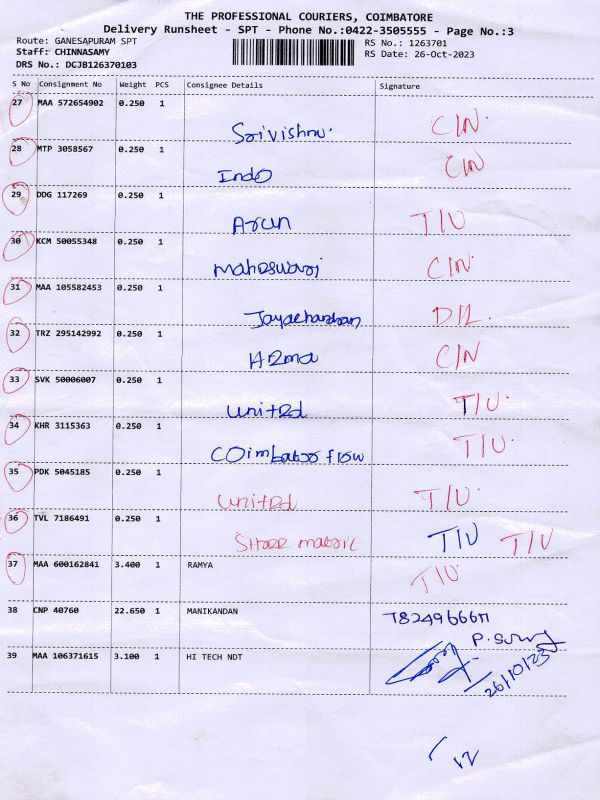 THE PROFESSIONAL COURIERS, COIMBATORE
Delivery Runsheet - SPT - Phone No.:0422-3505555 - Page No.:3
Route: GANESAPURAM SPT RS No.: 1263701
Staff: CHINNASAMY RS Date: 26-Oct-2023
DRS No.: DCJB126370103
S No Consignment No Weight PCS Consignee Details Signature
27 MAA 572654902 0.250 1
Srivishnu. C/N.
28 MTP 3058567 0.250 1
Indo C/N
29 DDG 117269 0.250 1
Arun T/U
30 KCM 50055348 0.250 1
maheswari C/N.
31 MAA 105582453 0.250 1
Jayachandran D/L.
32 TRZ 295142992 0.250 1
C/N
33 SVK 50006007 0.250 1
united T/U.
34 KHR 3115363 0.250 1
Coimbatore flow T/U.
35 PDK 5045185 0.250 1
united T/U.
36 TVL 7186491 0.250 1
T/U T/U
37 MAA 600162841 3.400 1 RAMYA
T/U.
38 CNP 40760 22.650 1 MANIKANDAN
39 MAA 106371615 3.100 1 HI TECH NDT
26/10/23